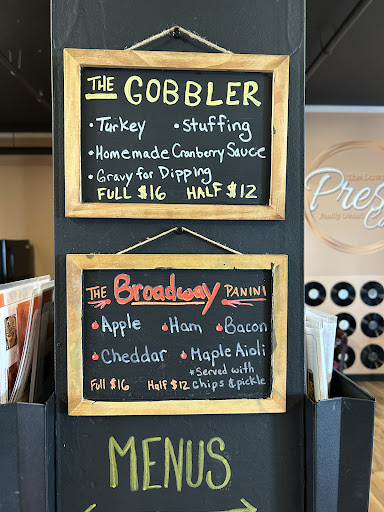 THE GOBBLER
• Turkey • Stuffing
• Homemade Cranberry Sauce
• Gravy for Dipping
FULL $16 HALF $12
THE Broadway PANINI
Apple Ham Bacon
Cheddar Maple Aioli
*Served with
Full $16 Half $12 chips & pickle
MENUS
The
Pres
Family Owned